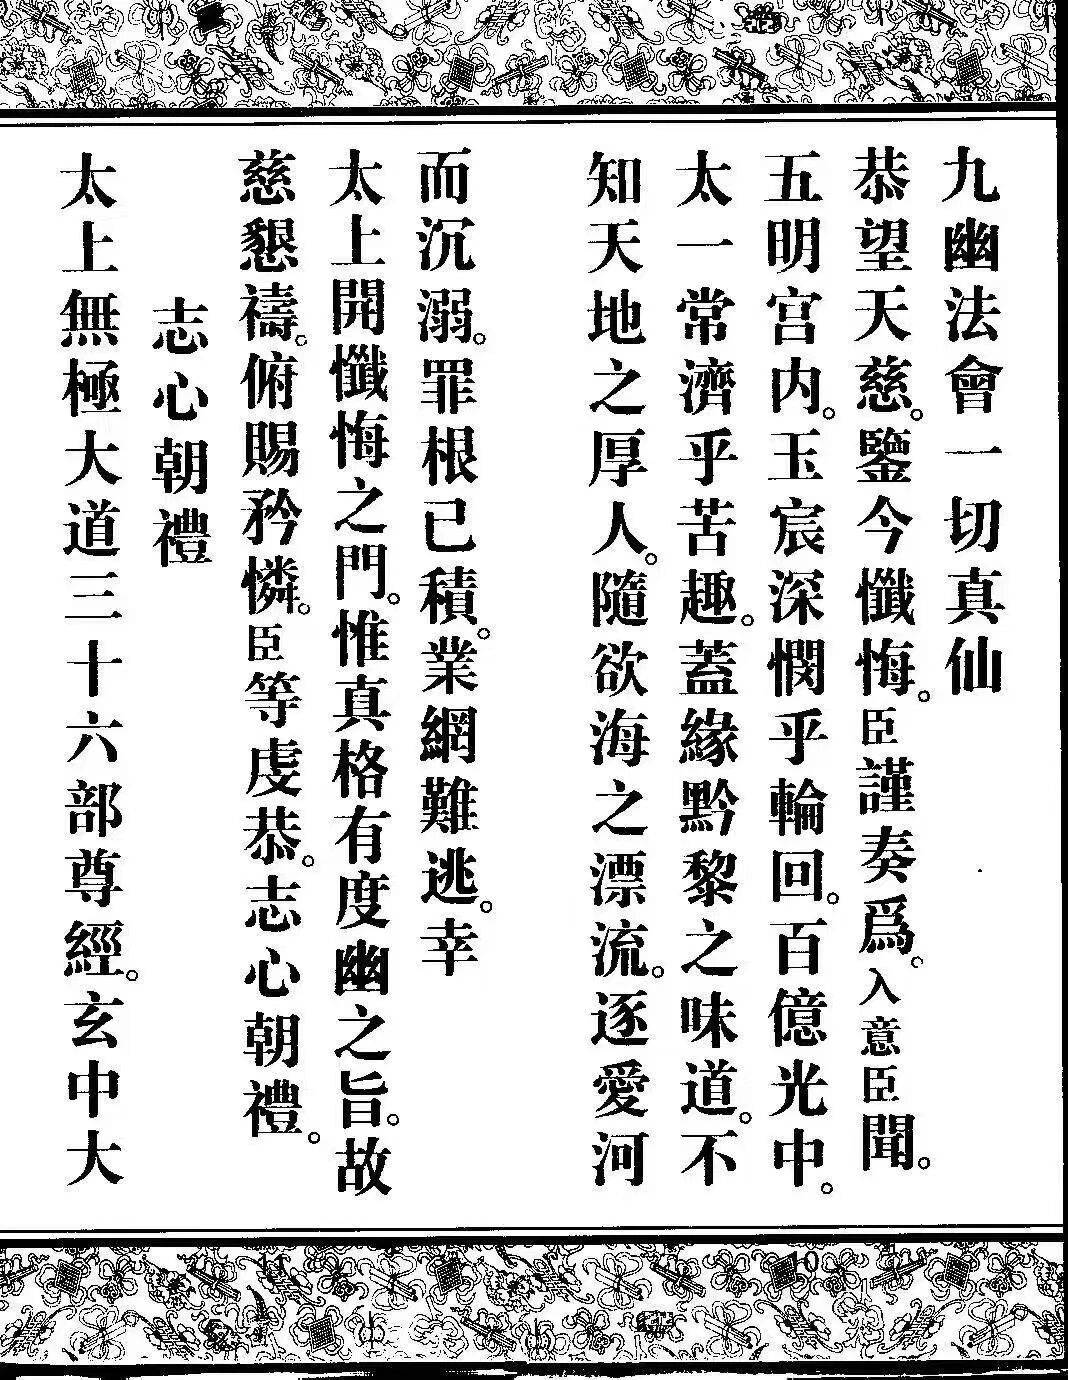 九幽法會一切真仙
恭望天慈。鑒今懺悔。臣謹奏爲。入意臣聞。
五明宮内。玉宸深憫乎輪回。百億光中。
太一常濟乎苦趣。蓋緣黔黎之味道。不
知天地之厚人。隨欲海之漂流。逐愛河
而沉溺。罪根已積。業網難逃。幸
太上開懺悔之門。惟真格有度幽之旨。故
慈懇禱。俯賜矜憐。臣等虔恭。志心朝禮。
志心朝禮
太上無極大道三十六部尊經。玄中大
10
11